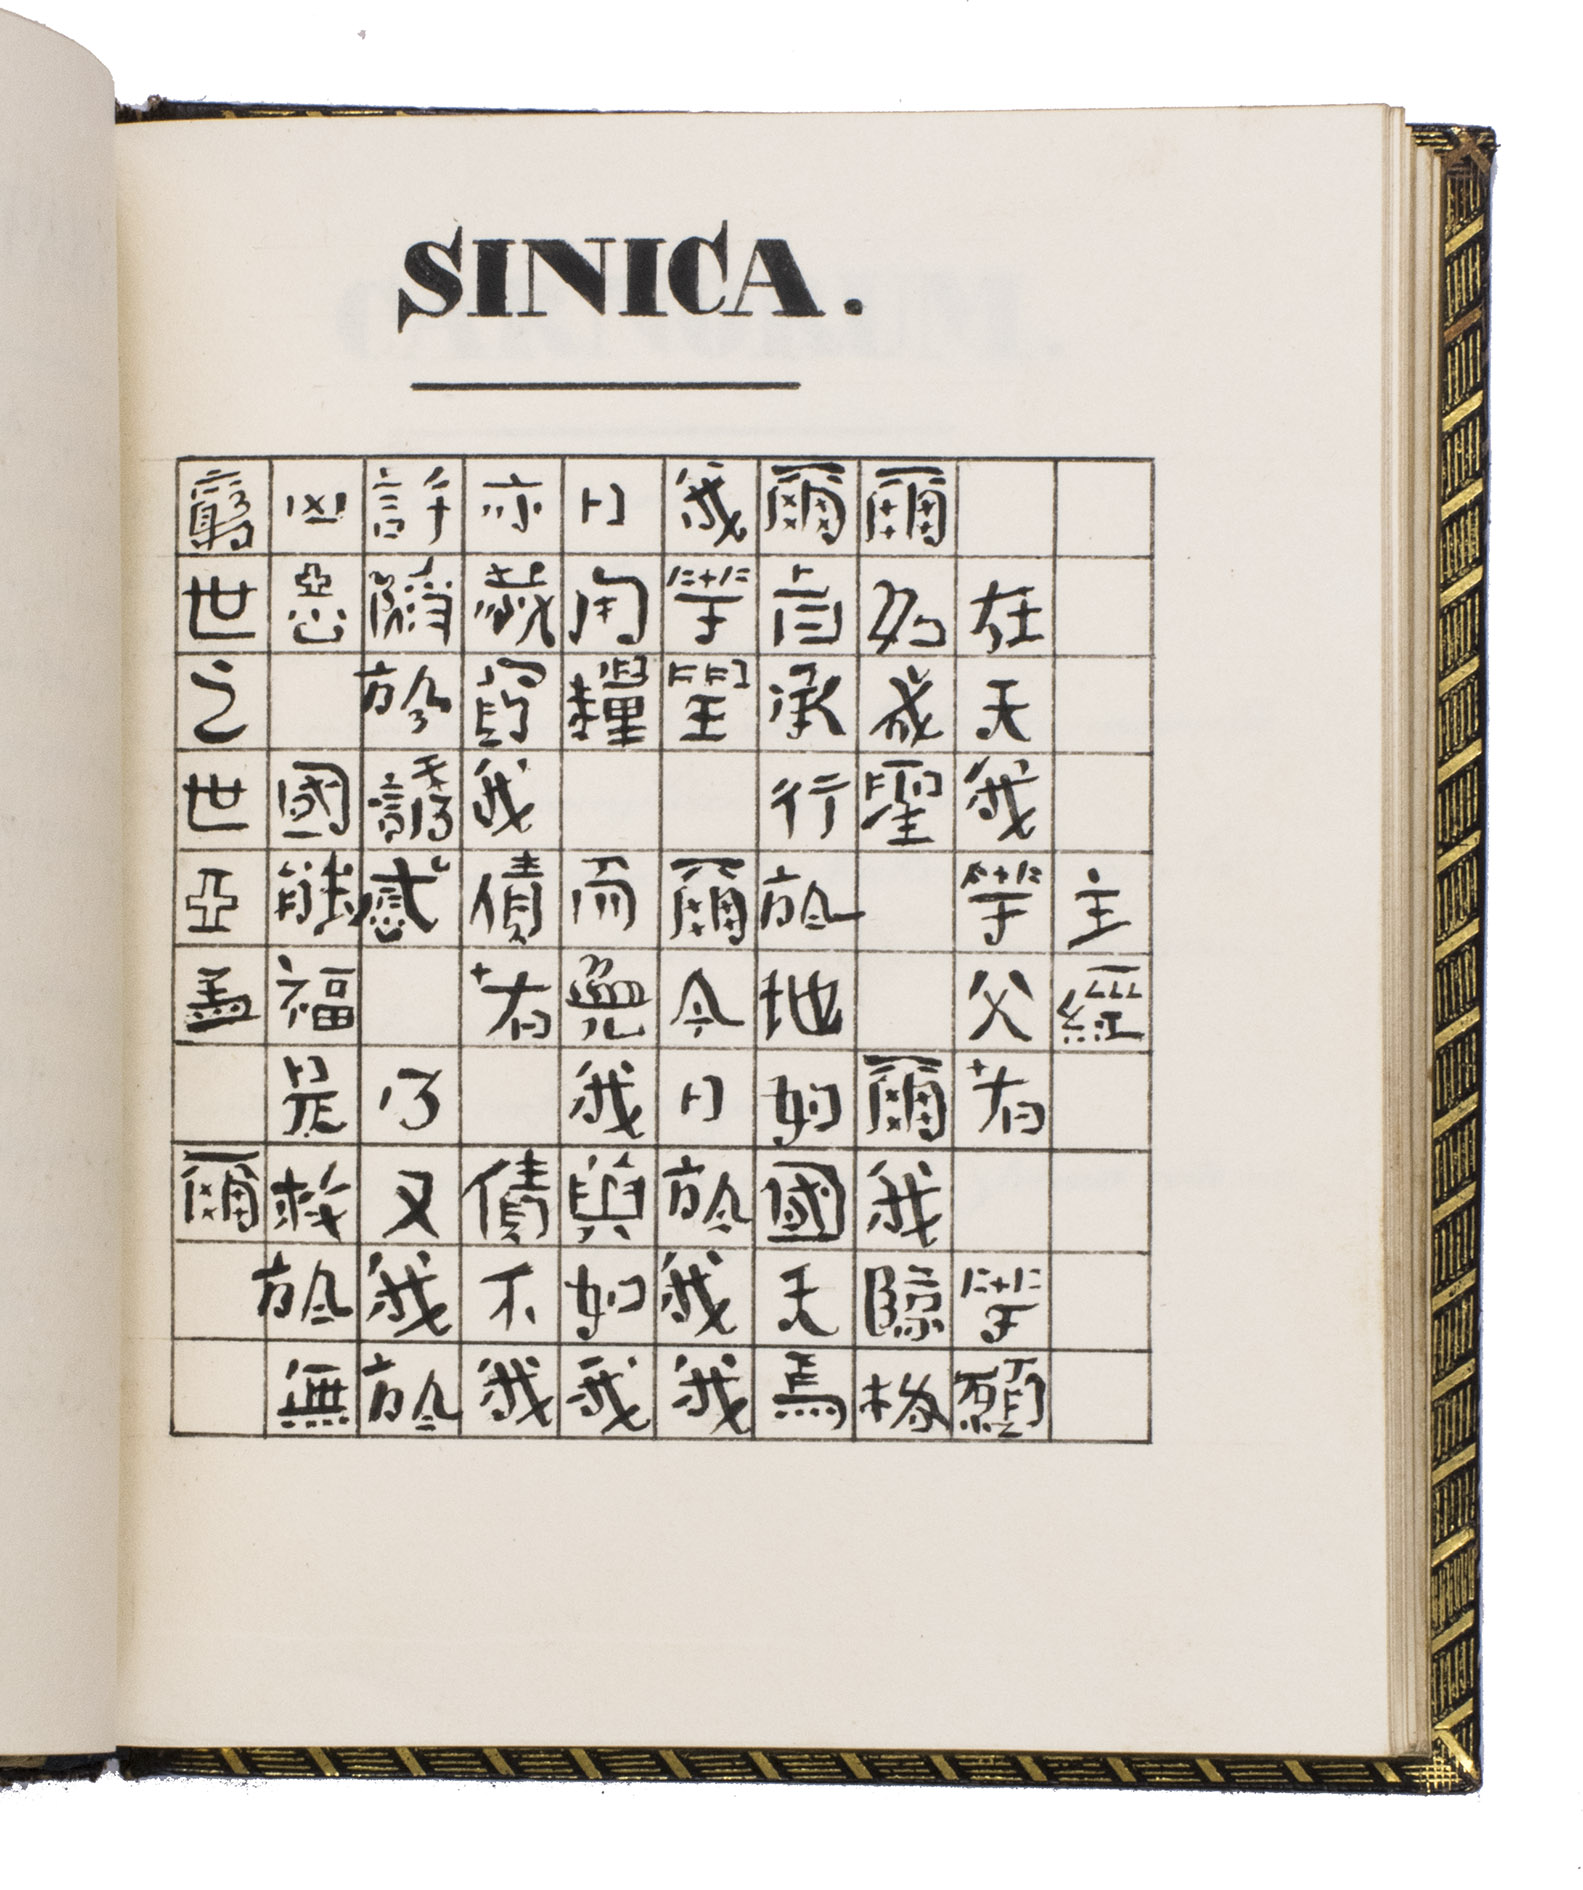 SINICA.
主經
在天我等父者等願
爾名成聖爾我臨格
爾旨承行於地如國天焉
我等望爾今日於我我
日用糧而免我與如我
亦赦負我債者債不我
許陷於誘感乃又我於
凶惡國能福是救於無
窮世之世亞孟爾